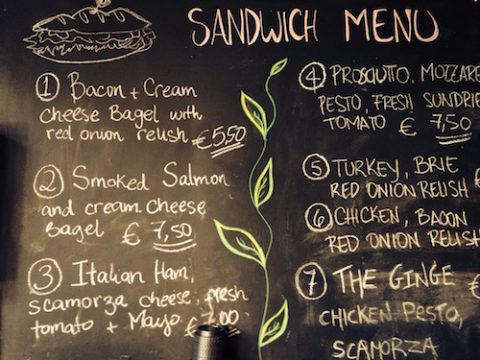 SANDWICH MENU
1 Bacon + Cream
Cheese Bagel with
red onion relish €5,50
2 Smoked Salmon
and cream cheese
Bagel € 7,50
3 Italian Ham,
scamorza cheese, fresh
tomato + Mayo €7.00
4 PROSCIUTTO, MOZZARE
PESTO, FRESH SUNDRIE
TOMATO € 7,50
5 TURKEY, BRIE
RED ONION RELISH €
6 CHICKEN, BACON
RED ONION RELISH
7 THE GINGE
CHICKEN PESTO,
SCAMORZA